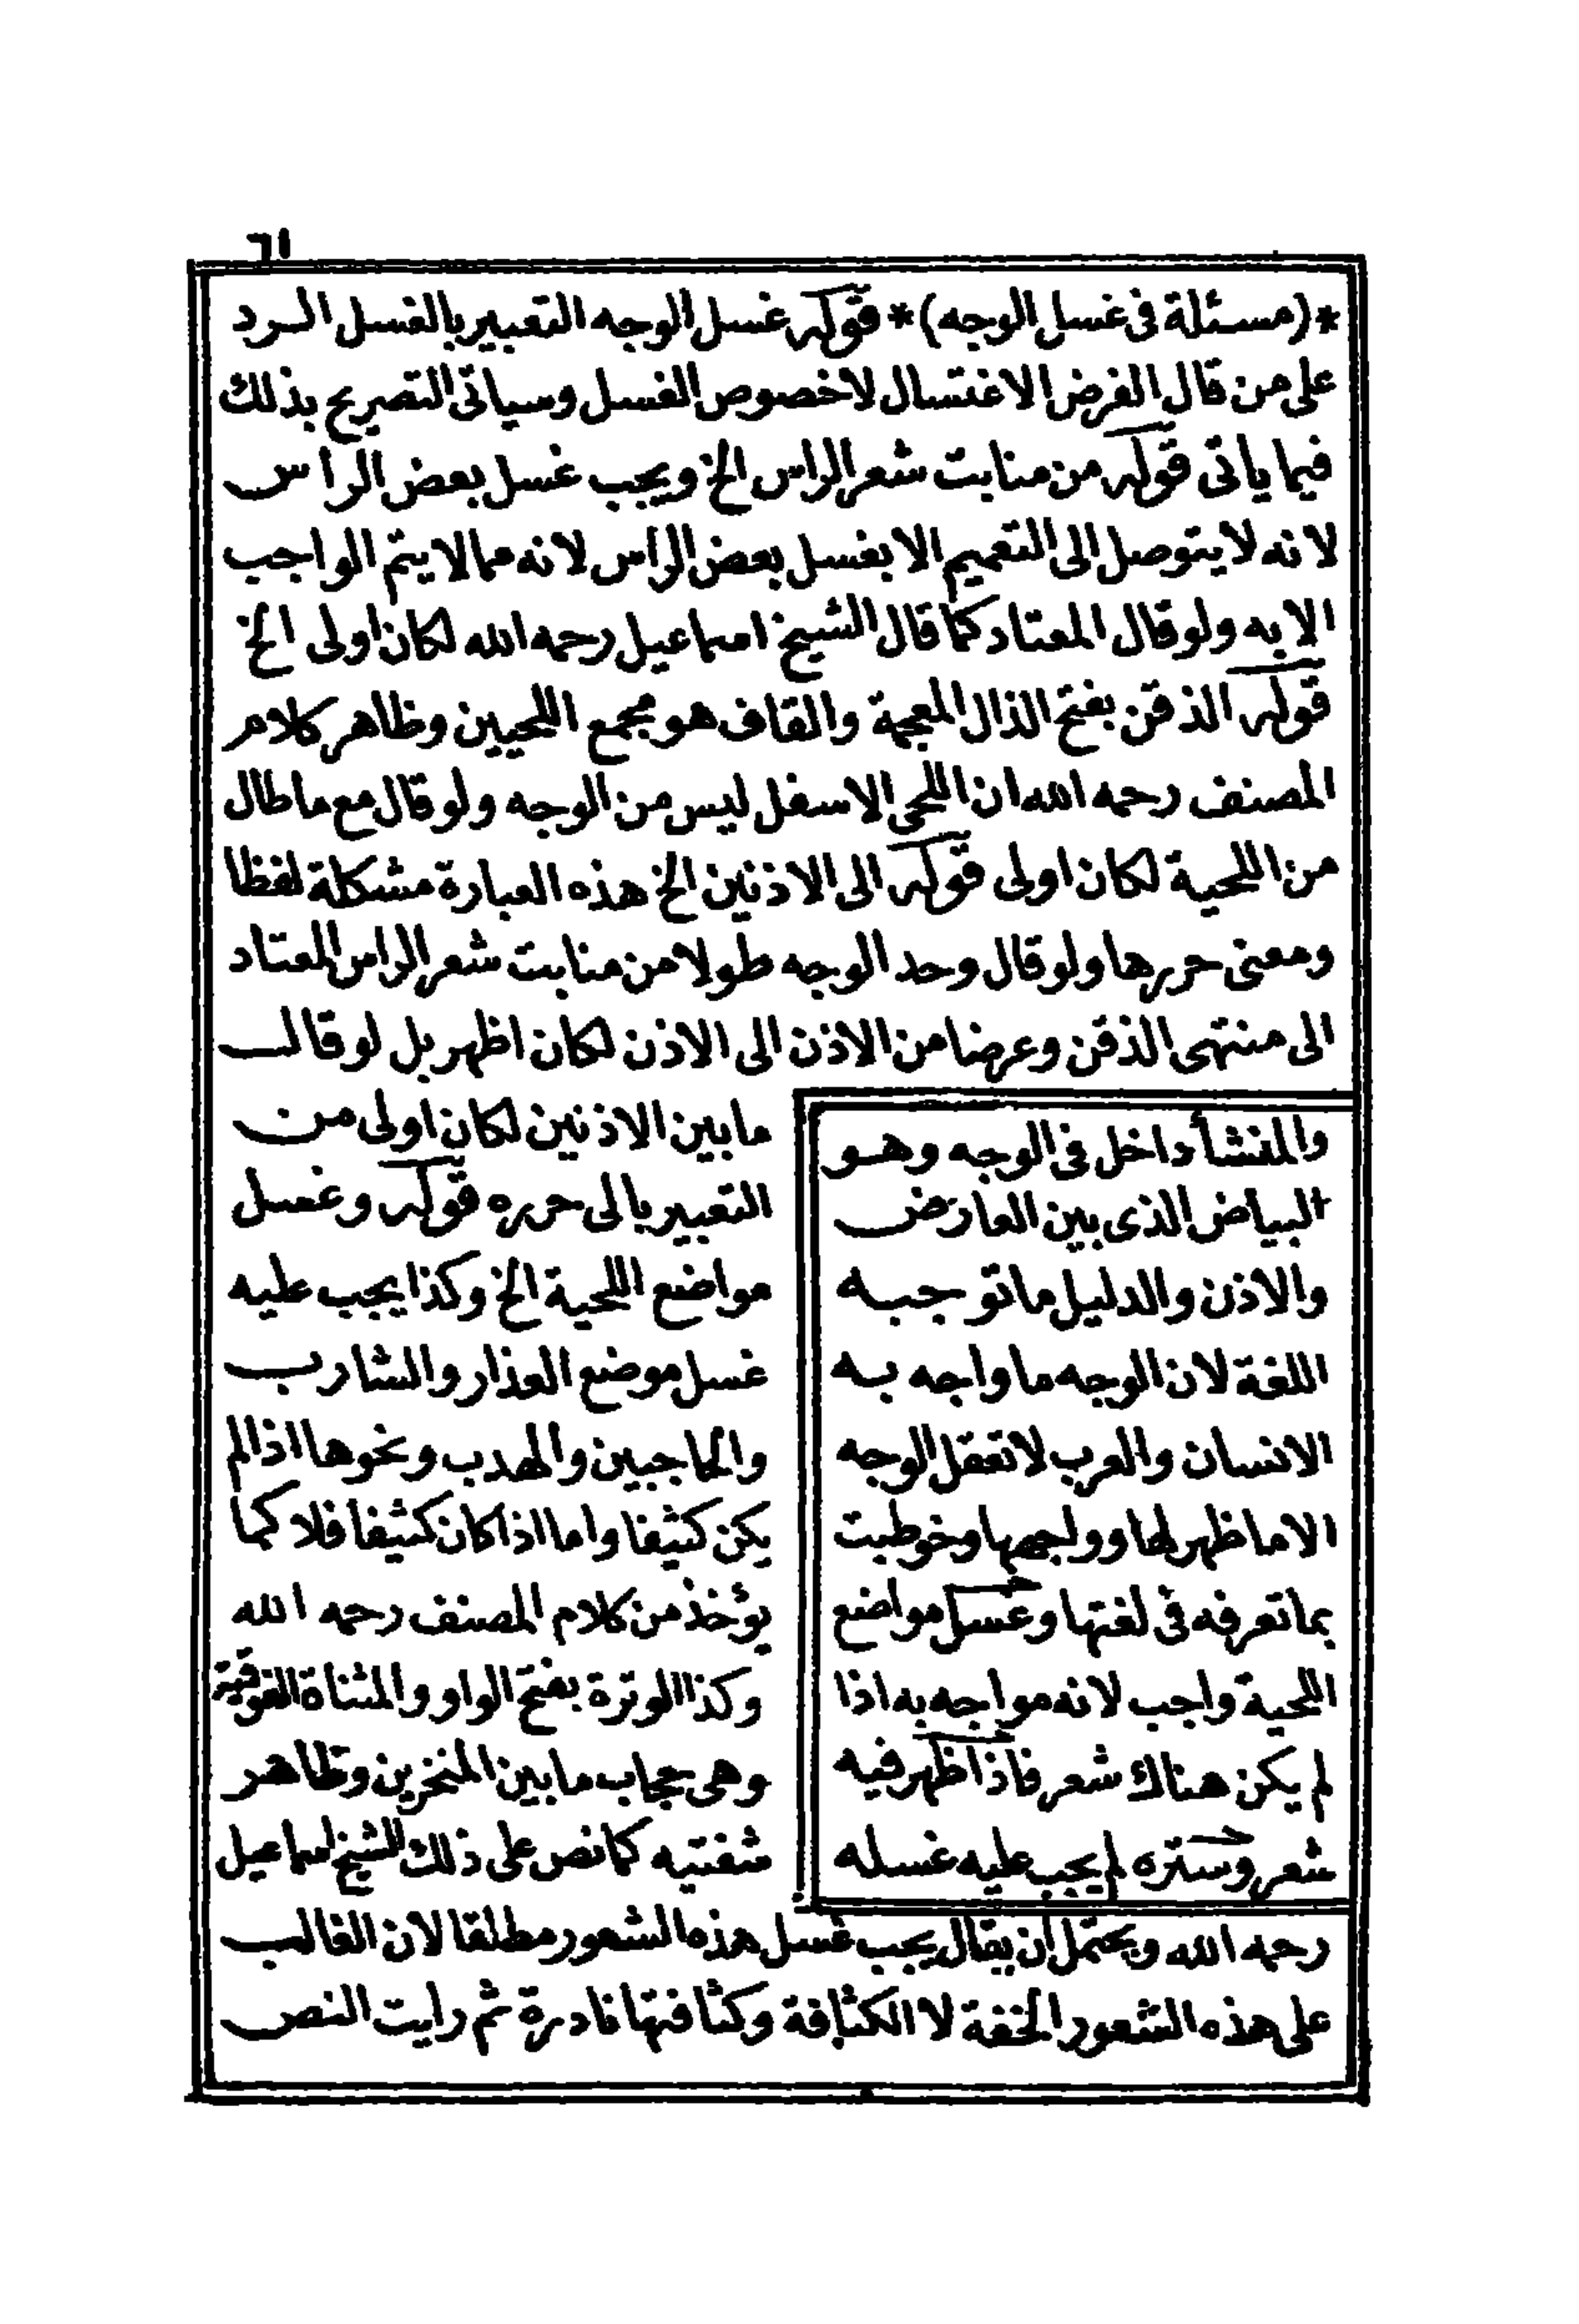 ٦١
*(مسئلة فى غسل الوجه)* قوله غسل الوجه التعبير بالغسل الرد
على من قال الفرض الاغتسال لا خصوص الغسل وسياتى التصريح بذلك
فيما ياتى قوله من منابت شعر الراس الخ ويجب غسل بعض الرأس
لانه لا يتوصل الى التعميم الا بغسل بعض الرأس لانه مما لا يتم الواجب
الا به ولو قال المعتاد كما قال الشيخ اسماعيل رحمه الله لكان اولى الخ
قوله الذقن بفتح الذال المعجمة والقاف هو مجمع اللحيين وظاهر كلام
المصنف رحمه الله ان اللحى الاسفل ليس من الوجه ولو قال مع ما طال
من اللحية لكان اولى قوله الى الاذنين الخ هذه العبارة مشكلة لفظا
ومعنى حررها ولو قال وحد الوجه طولا من منابت شعر الراس المعتاد
الى منتهى الذقن وعرضا من الاذن الى الاذن لكان اظهر بل لو قال
ما بين الاذنين لكان اولى من
التعبير بالى حرره قوله وغسل
مواضع اللحية الخ وكذا يجب عليه
غسل موضع العذار والشارب
والحاجبين والهدب ونحوها اذا لم
يكن كثيفا واما اذا كان كثيفا فلا كما
يؤخذ من كلام المصنف رحمه الله
وكذا الوترة بفتح الواو والمثناة الفوقية
وهى حجاب ما بين المنخرين وظاهر
شفتيه كما نص على ذلك الشيخ اسماعيل
رحمه الله ويحتمل ان يقال يجب غسل هذه الشعور مطلقا لان الغالب
على هذه الشعور الخفة لا الكثافة وكثافتها نادرة ثم رايت النص
والمنشأ داخل فى الوجه وهو
البياض الذى بين العارض
والاذن والدليل ما توجبه
اللغة لان الوجه ما واجه به
الانسان والعرب لا تعقل الوجه
الا ما ظهر لها وواجهها وخوطبت
بما تعرفه فى لغتها وغسل مواضع
اللحية واجب لانه مواجه به اذا
لم يكن هناك شعر فاذا ظهر فيه
شعر وستره لم يجب عليه غسله